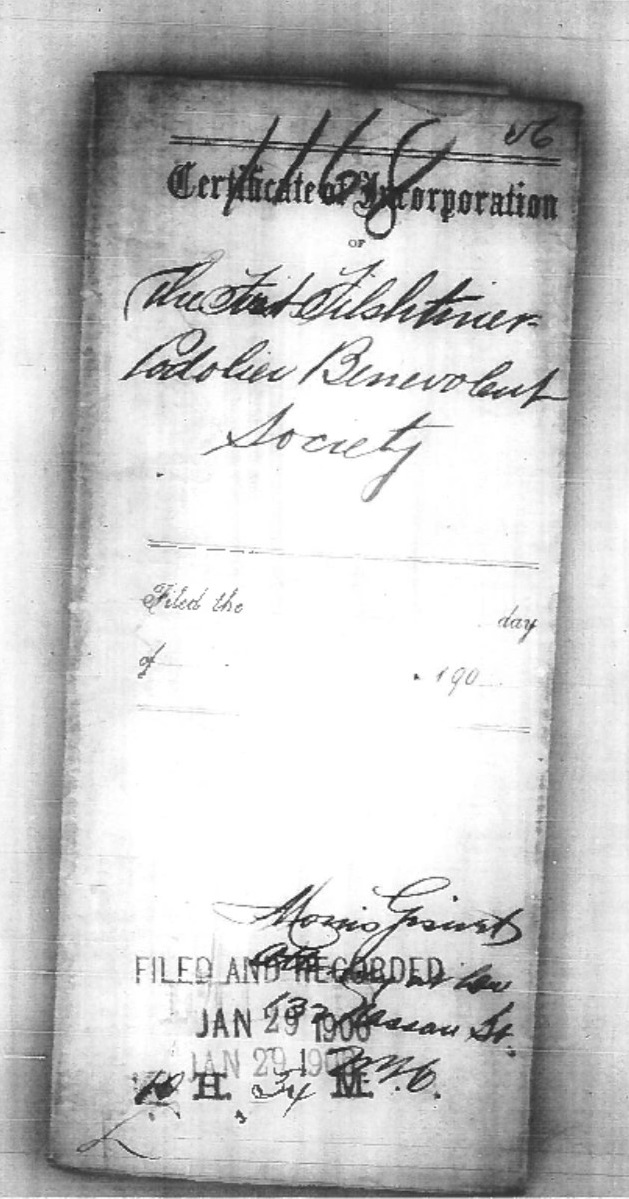 1168
Certificate of Incorporation
OF
The First Filshtiner
Podolier Benevolent
Society
Filed the day
of 190
Morris
Atty at Law
132 Nassau St.
N.Y.C.
FILED AND RECORDED
JAN 29 1906
JAN 29 190
10 H. 34 M.